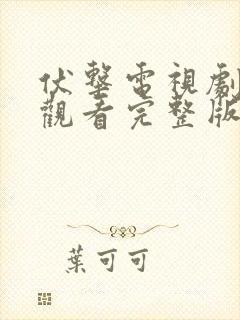 伏擊電視劇
觀看完整版
葉可可